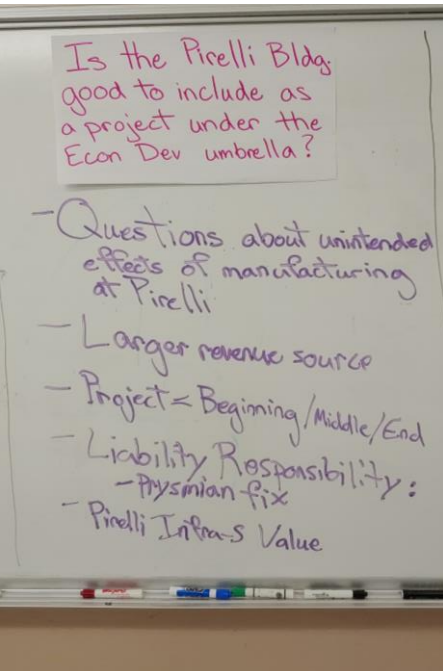 Is the Pirelli Bldg.
good to include as
a project under the
Econ Dev umbrella?
- Questions about unintended
effects of manufacturing
at Pirelli
- Larger revenue source
- Project = Beginning/Middle/End
- Liability Responsibility:
- Prysmian fix
- Pirelli Infra-S Value